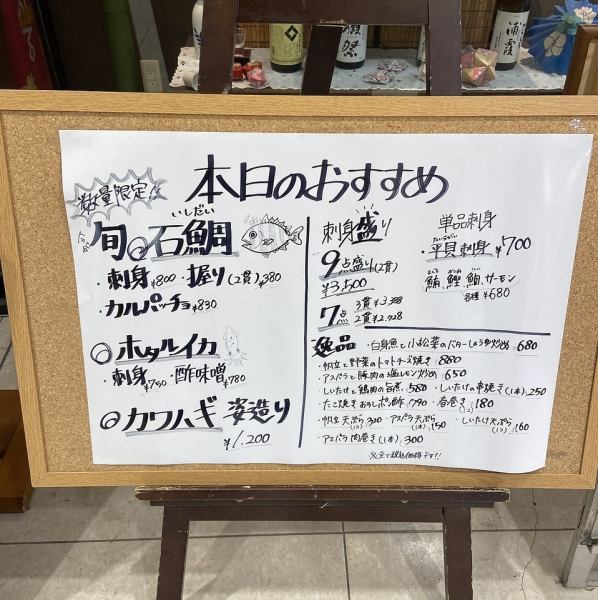 浦霞
獺祭
本日のおすすめ
数量限定!!
いしだい
旬の石鯛
・刺身 ¥800 ・握り(2貫) ¥380
・カルパッチョ ¥830
ホタルイカ
・刺身 ¥750 ・酢味噌 ¥780
カワハギ 姿造り
¥1,200
刺身盛り
9点盛り(2貫)
¥3,500
7点 3貫 ¥3,388
2貫 ¥2,728
単品刺身
・平貝刺身 ¥700
鮪、鰹、鯛、サーモン
各種 ¥680
逸品 ・白身魚と小松菜のバターしょうゆ炒め 680
・帆立と野菜のトマトチーズ焼き 880
・アスパラと豚肉の塩レモン炒め 650
・しいたけと鶏肉の旨煮 580 ・しいたけの串焼き(1本) 250
・たこ焼き おろしポン酢 790 ・春巻き(1コ) 180
・帆立天ぷら(1コ) 300 ・アスパラ天ぷら(1本) 150 ・しいたけ天ぷら(1コ) 160
・アスパラ肉巻き(1本) 300
※全て税込価格です!!